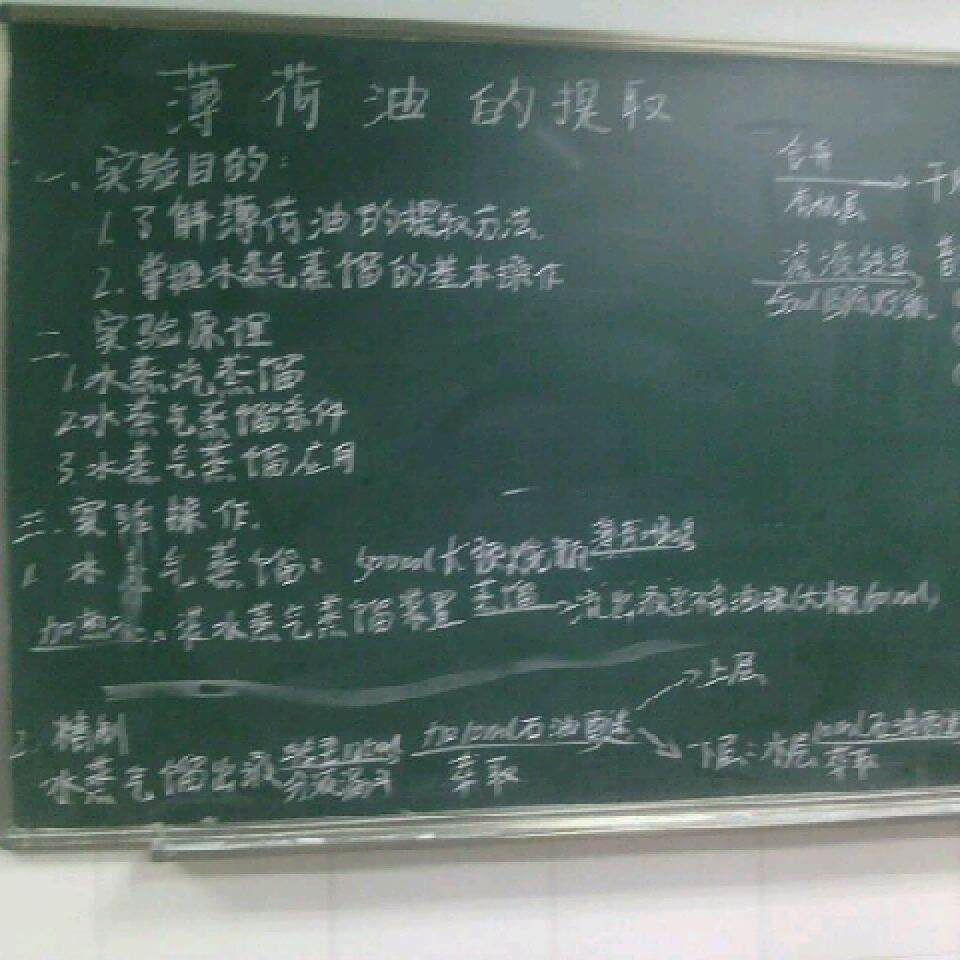 薄荷油的提取
一、实验目的：
1.了解薄荷油的提取方法
2.掌握水蒸气蒸馏的基本操作
二、实验原理
1.水蒸汽蒸馏
2.水蒸气蒸馏条件
3.水蒸气蒸馏应用
三.实验操作.
1.水蒸气蒸馏：500ml大圆烧瓶
加热 水蒸气蒸馏装置 蒸馏 流出液
2.精制
水蒸气馏出液 分液漏斗 加10ml石油醚 萃取
上层
下层：水层 10ml石油醚 萃取
合并
有机层
滤液转至
5ml圆底烧瓶